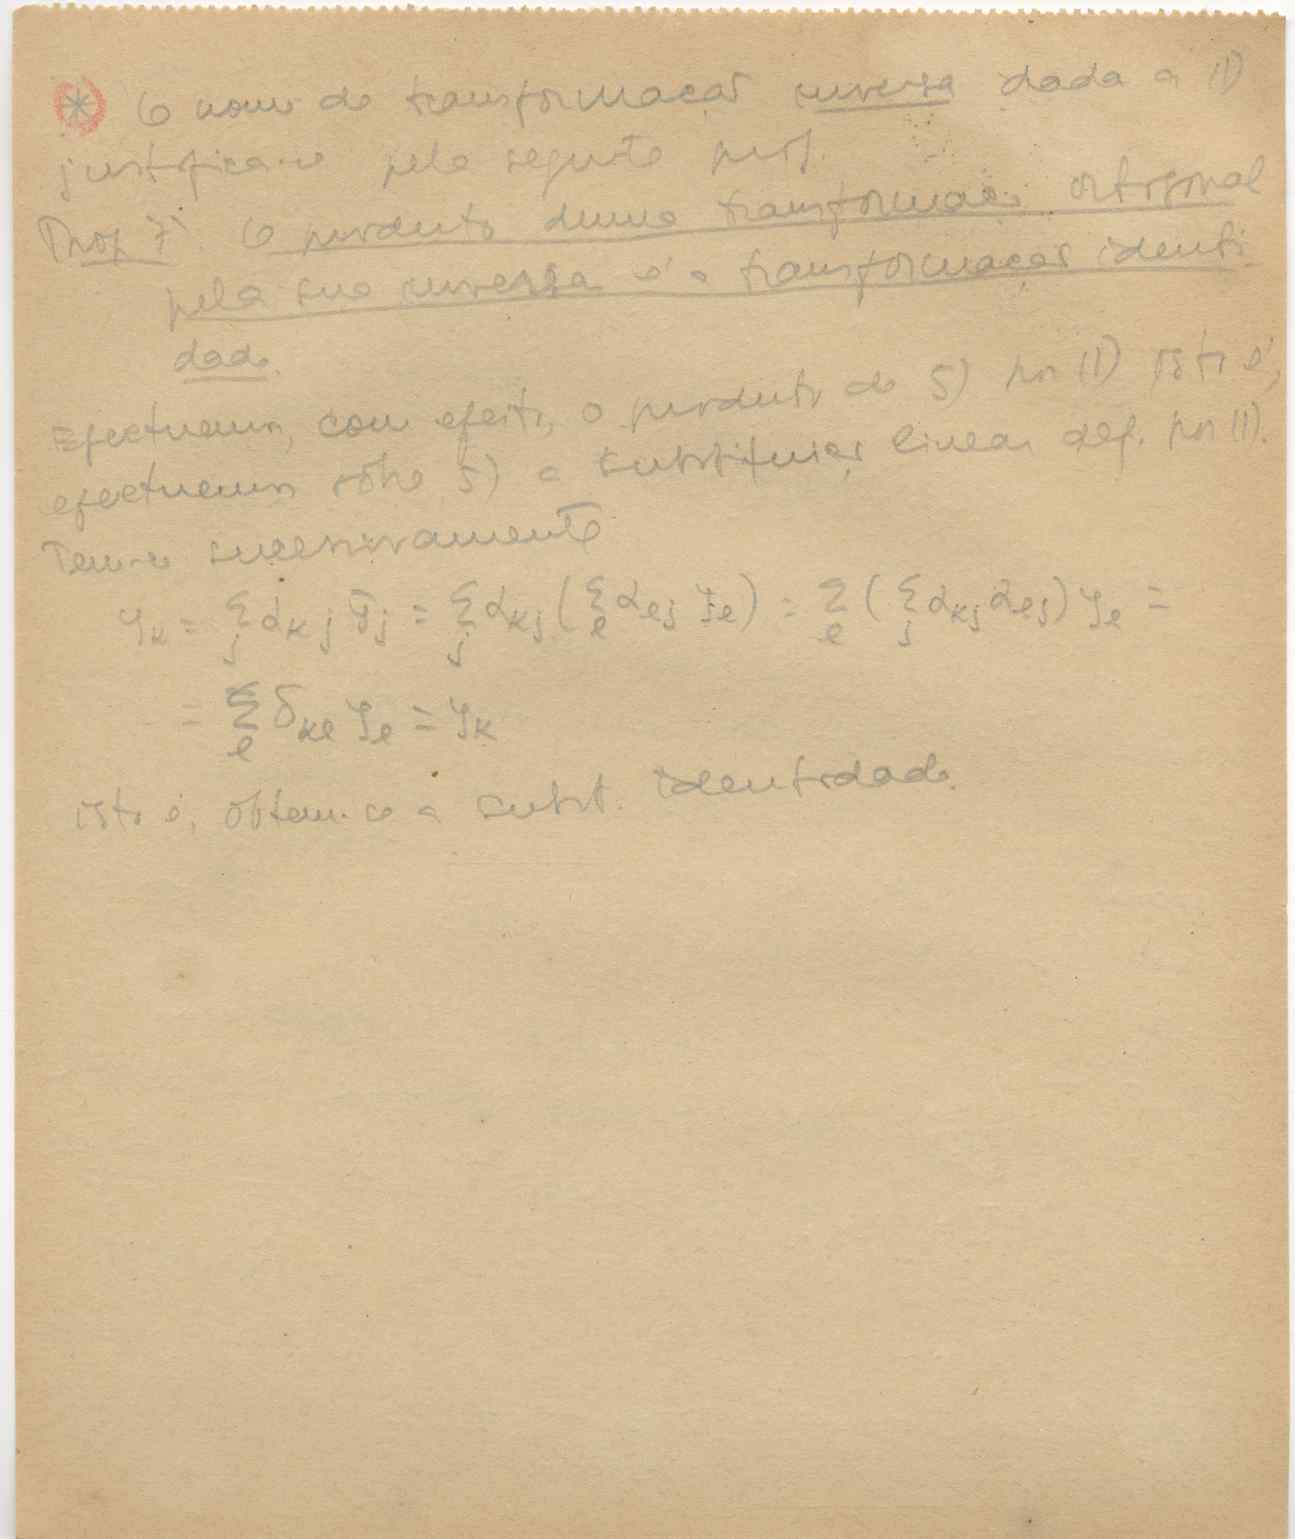 * O nome de transformação inversa dada a 11)
justifica-se pela seguinte prop.
Prop 7ª. O produto duma transformação ortogonal
pela sua inversa é a transformação identi-
dade.
Efectuemos, com efeito, o produto de 5) por 11) isto é,
efectuemos sobre 5) a substituição linear def. por 11).
Tem-se sucessivamente
y_k = Σ_j α_kj ȳ_j = Σ_j α_kj (Σ_l α_lj y_l) = Σ_l (Σ_j α_kj α_lj) y_l =
= Σ_l δ_kl y_l = y_k
isto é, obtem-se a subst. identidade.